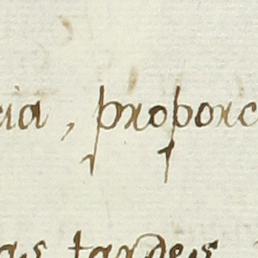 cia, proporc
as tardes